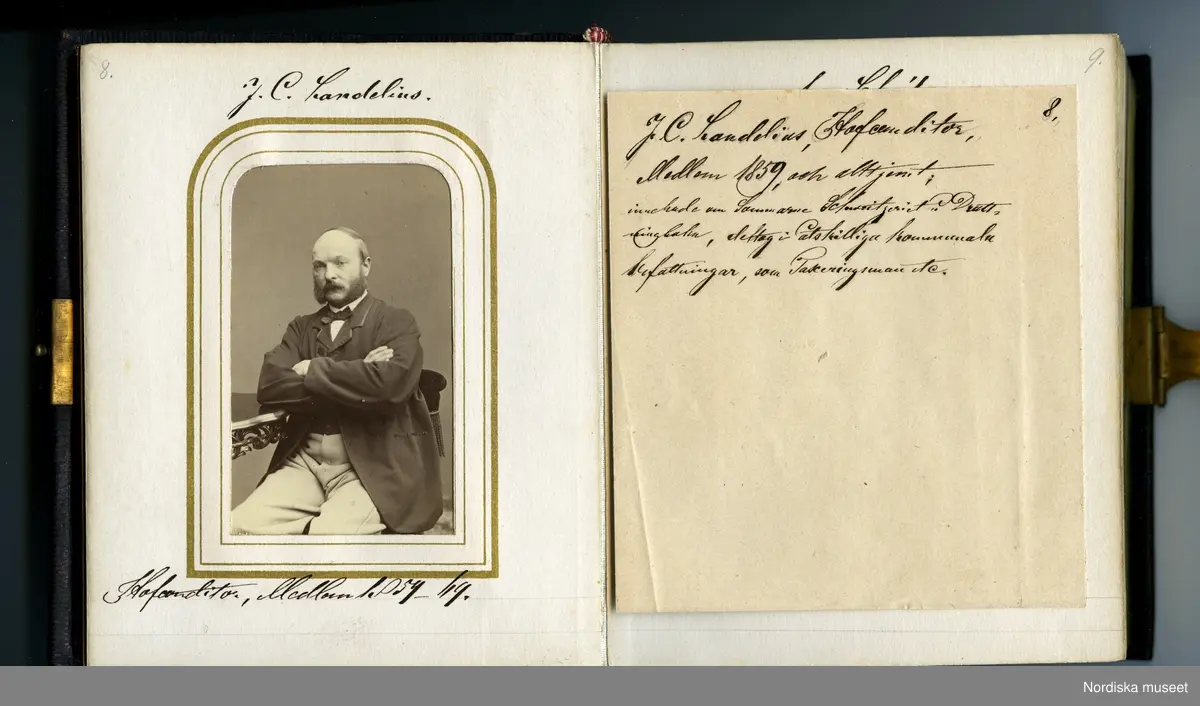 8.
J. C. Landelius.
Hofconditor, Medlem 1859 - 69.
9.
8.
J. C. Landelius, Hofconditor,
Medlem 1859, och alltjemt;
innehade om Sommarne Schweitzeriet å Drott-
ningholm, deltog i åtskilliga kommunala
befattningar, som Taxeringsman etc.
Nordiska museet